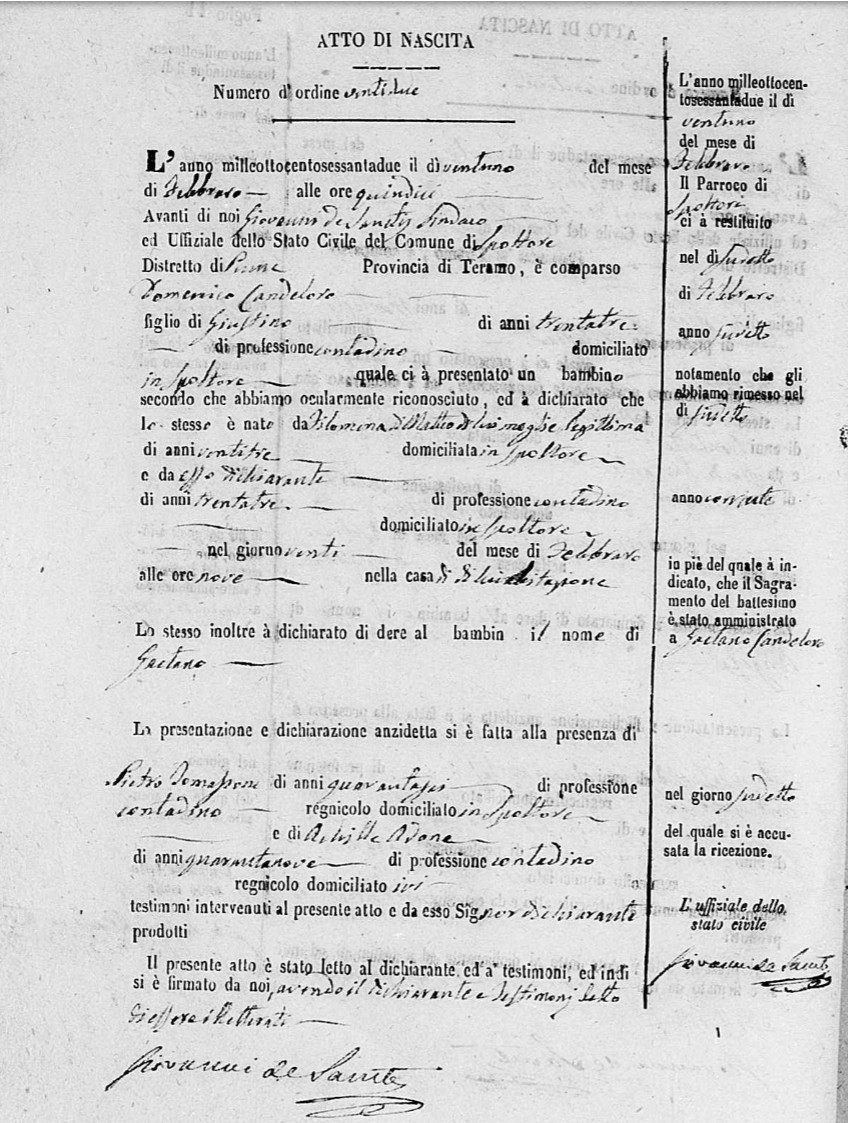 ATTO DI NASCITA
Numero d'ordine ventidue
L'anno milleottocentosessantadue il dì ventuno del mese
di Febbraro alle ore quindici
Avanti di noi Giovanni de Sanctis Sindaco
ed Uffiziale dello Stato Civile del Comune di Spoltore
Distretto di Penne Provincia di Teramo, è comparso
Domenico Candeloro
figlio di Giustino di anni trentatre
di professione contadino domiciliato
in Spoltore quale ci à presentato un bambino
secondo che abbiamo ocularmente riconosciuto, ed à dichiarato che
lo stesso è nato da Filomena di Matteo di lui moglie legittima
di anni ventitre domiciliata in Spoltore
e da esso dichiarante
di anni trentatre di professione contadino
domiciliato in Spoltore
nel giorno venti del mese di Febbraro
alle ore nove nella casa di di lui abitazione
Lo stesso inoltre à dichiarato di dere al bambin il nome di
Gaetano
La presentazione e dichiarazione anzidetta si è fatta alla presenza di
Pietro di anni quarantasei di professione
contadino regnicolo domiciliato in Spoltore
e di Achille Adone
di anni quarantanove di professione contadino
regnicolo domiciliato ivi
testimoni intervenuti al presente atto e da esso Signor dichiarante
prodotti
Il presente atto è stato letto al dichiarante ed a' testimoni, ed indi
si è firmato da noi, avendo il dichiarante e testimonj detto
di essere illetterati
Giovanni de Sanctis
L'anno milleottocen-
tosessantadue il dì
ventuno
del mese di
Febbraro
Il Parroco di
Spoltore
ci à restituito
nel dì sudetto
di Febbraro
anno sudetto
notamento che gli
abbiamo rimesso nel
dì sudetto
anno corrente
in piè del quale à in-
dicato, che il Sagra-
mento del battesimo
è stato amministrato
a Gaetano Candeloro
nel giorno sudetto
del quale si è accu-
sata la ricezione.
L'uffiziale dello
stato civile
Giovanni de Sanctis